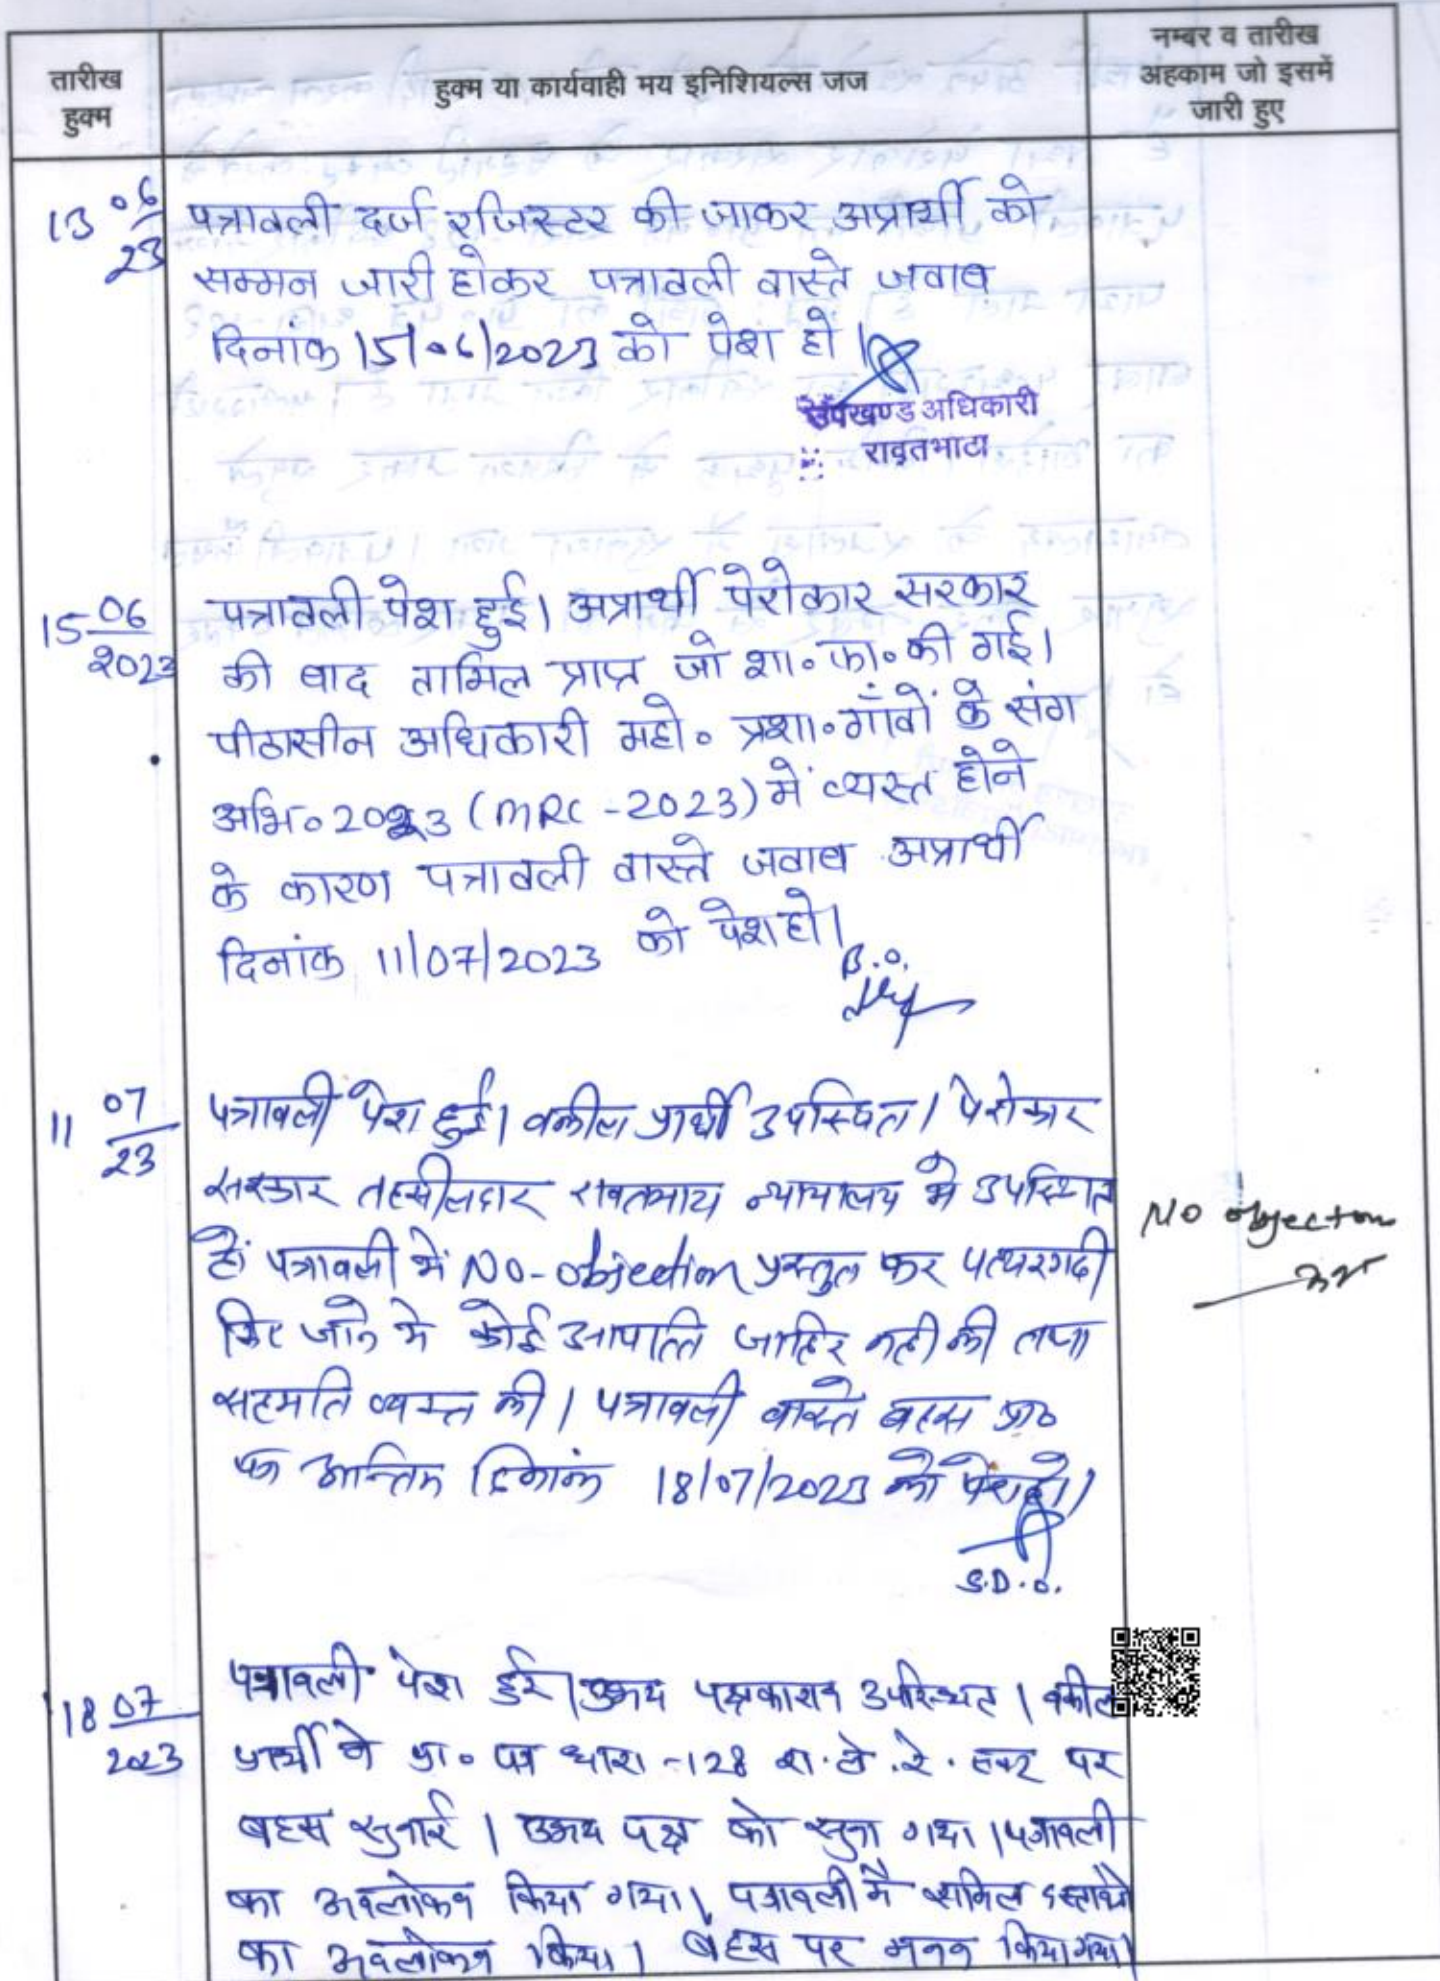 तारीख
हुक्म
हुक्म या कार्यवाही मय इनिशियल्स जज
नम्बर व तारीख
अहकाम जो इसमें
जारी हुए
13 06/23
पत्रावली दर्ज रजिस्टर की जाकर अप्रार्थी को
सम्मन जारी होकर पत्रावली वास्ते जवाब
दिनांक 15/06/2023 को पेश हो।
उपखण्ड अधिकारी
रावतभाटा
15 06/2023
पत्रावली पेश हुई। अप्रार्थी पेरोकार सरकार
की बाद तामिल प्राप्त जो शा० फा० की गई।
पीठासीन अधिकारी महो० प्रशा० गाँवों के संग
अभि० 2023 (MRC-2023) में व्यस्त होने
के कारण पत्रावली वास्ते जवाब अप्रार्थी
दिनांक 11/07/2023 को पेश हो।
11 07/23
पत्रावली पेश हुई। वकील प्रार्थी उपस्थित। पेरोकार
सरकार तहसीलदार रावतभाटा न्यायालय में उपस्थित
हो पत्रावली में No-objection प्रस्तुत कर पत्थरगढी
किए जाने मे कोई आपत्ति जाहिर नही की तथा
सहमति व्यक्त की। पत्रावली वास्ते बहस प्रा०
पत्र अन्तिम दिनांक 18/07/2023 को पेश हो।
S.D.O.
No objection
18 07/2023
पत्रावली पेश हुई। उभय पक्षकारान उपस्थित। वकील
प्रार्थी ने प्रा० पत्र धारा-128 रा.ले.रे. एक्ट पर
बहस सुनाई। उभय पक्ष को सुना गया। पत्रावली
का अवलोकन किया गया। पत्रावली मै शामिल दस्तावेजो
का अवलोकन किया। बहस पर मनन किया गया।